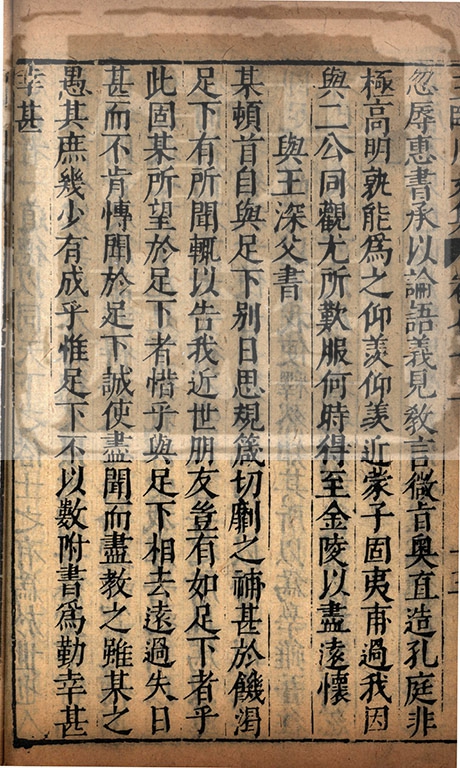 忽辱惠書承以論語義見教言微旨奧直造孔庭非
極高明孰能為之仰羡仰羡近蒙子固夷甫過我因
與二公同觀尤所歎服何時得至金陵以盡遠懷
與王深父書
某頓首自與足下别日思規箴切劘之補甚於饑渴
足下有所聞輒以告我近世朋友豈有如足下者乎
此固某所望於足下者惜乎與足下相去遠過失日
甚而不肯慱聞於足下誠使盡聞而盡教之雖某之
愚其庶幾少有成乎惟足下不以數附書爲勤幸甚
幸甚